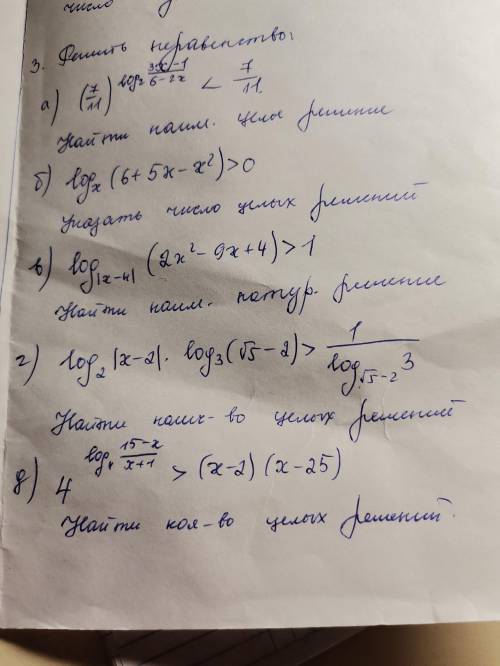 число
3. Решить неравенство:
а) (7/11)^(log₂ (3x-1)/(6-2x)) < 7/11
Найти наим. целое решение
б) logₓ (6+5x-x²)>0
Указать число целых решений
в) log|x-4| (2x²-9x+4)>1
Найти наим. натур. решение
г) log₂|x-2|·log₃(√5-2)> 1/(log_(√5-2) 3)
Найти кол-во целых решений
д) 4^(log₄ (15-x)/(x+1)) > (x-2)(x-25)
Найти кол-во целых решений.